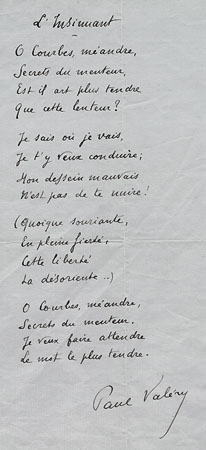 L'Insinuant
O Courbes, méandre,
Secrets du menteur,
Est il art plus tendre
Que cette lenteur?
Je sais où je vais,
Je t'y veux conduire;
Mon dessein mauvais
N'est pas de te nuire!
(Quoique souriante,
En pleine fierté,
Cette liberté
La désoriente..)
O Courbes, méandre,
Secrets du menteur.
Je veux faire attendre
Le mot le plus tendre.
Paul Valéry